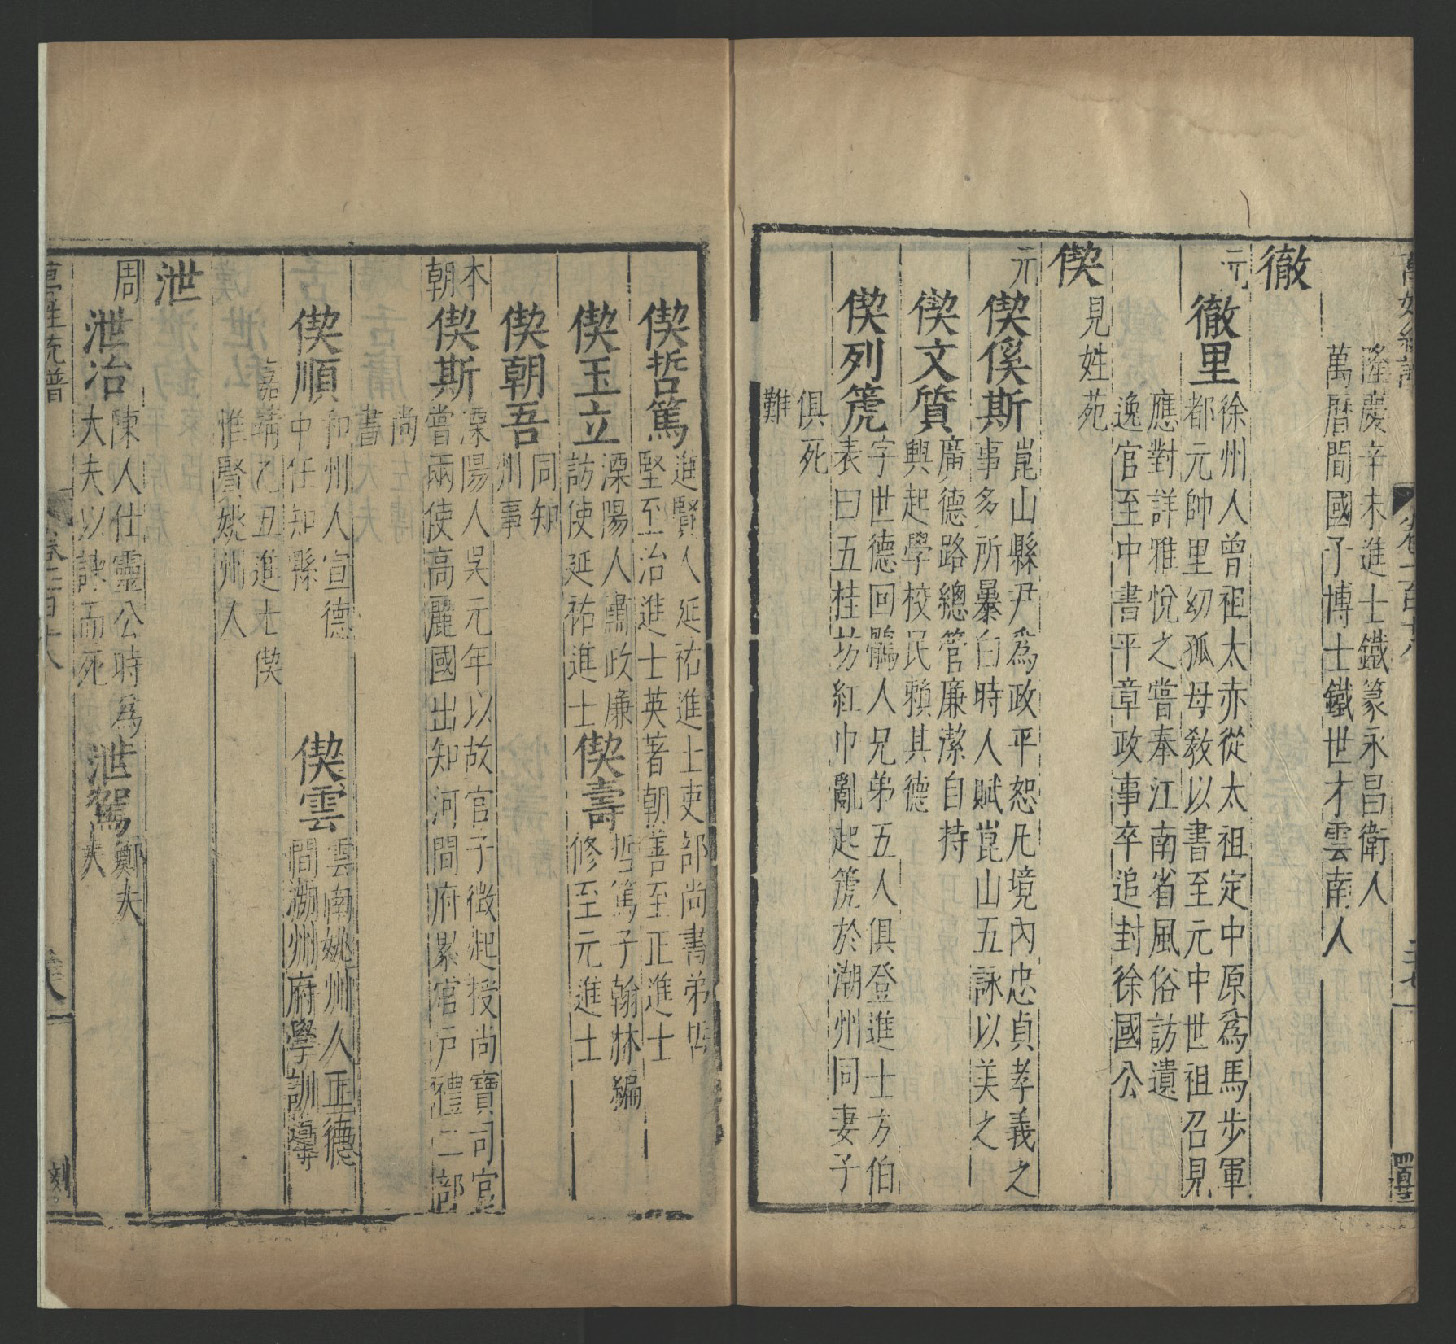 隆慶辛未進士鐵篆永昌衛人
萬曆間國子博士鐵世才雲南人
徹
元
徹里
徐州人曾祖太赤從太祖定中原為馬步軍
都元帥里幼孤母敎以書至元中世祖召見
應對詳雅悅之嘗奉江南省風俗訪遺
逸官至中書平章政事卒追封徐國公
偰
見姓苑
元
偰傒斯
崑山縣尹為政平恕凡境內忠貞孝義之
事多所暴白時人賦崑山五詠以美之
偰文質
廣德路總管廉潔自持
興起學校民賴其德
偰列箎
字世德回鶻人兄弟五人俱登進士方伯
表曰五桂坊紅巾亂起箎於潮州同妻子
俱死
難
偰哲篤
進賢人延祐進士吏部尚書弟四
堅至治進士英著朝善至正進士
偰玉立
溧陽人肅政廉
訪使延祐進士
偰壽
哲篤子翰林編
修至元進士
偰朝吾
同知
州事
本
朝
偰斯
溧陽人吳元年以故官子徵起授尚寶司官
嘗兩使高麗國出知河間府累官戶禮二部
尚
書
偰順
和州人宣德
中任知縣
偰雲
雲南姚州人正德
間潮州府學訓導
嘉靖乙丑進士偰
惟賢姚州人
泄
周
泄冶
陳人仕靈公時為
大夫以諫而死
泄駕
鄭大
夫
萬姓統譜
卷一百十八